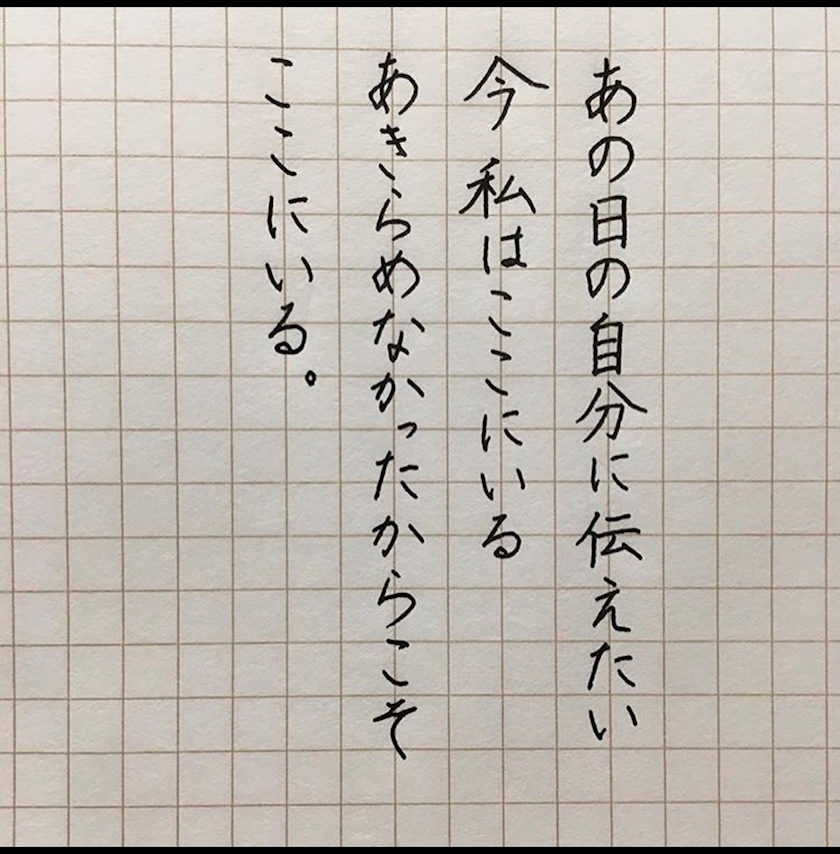 あの日の自分に伝えたい
今 私はここにいる
あきらめなかったからこそ
ここにいる。